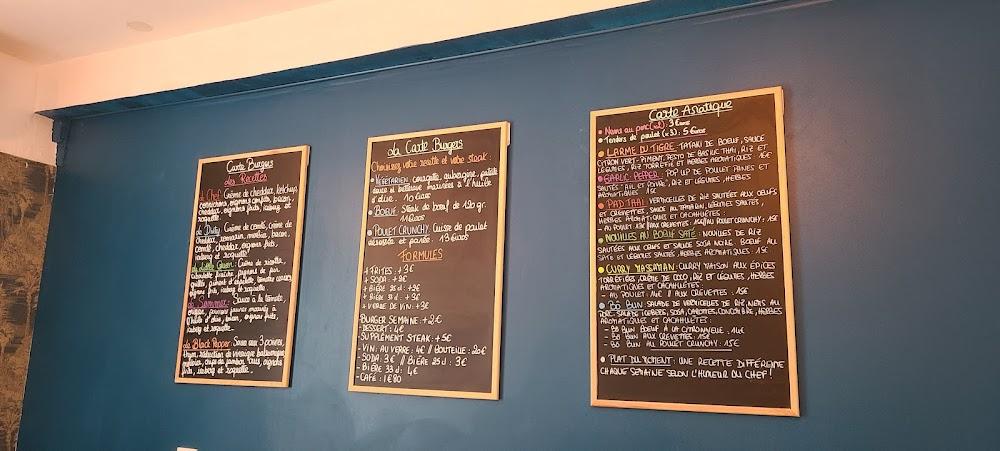 Carte Burgers
Les Recettes
Le Chef: Crème de cheddar, ketchup,
cornichons, oignons confits, bacon,
cheddar, oignons frits, iceberg et
roquette.
Le Duty: Crème de comté, crème de
cheddar, bacon,
comté, cheddar, oignons frits,
iceberg et roquette.
Le Little Green: Crème de ricotta,
fraîche, pignons de pin
grillés, piment d'espelette, tomates cerises,
oignons frits, iceberg et roquette.
Le Summer: Sauce à la tomate,
l'huile d'olive, bacon, oignons frits,
iceberg et roquette.
Le Black Pepper: Sauce aux 3 poivres,
thym, réduction de vinaigre balsamique,
oignons
frits, iceberg et roquette.
La Carte Burgers
Choisissez votre recette et votre steak:
VEGETARIEN: courgette, aubergine, patate
douce et marinées à l'huile
d'olive. 10 euros
BOEUF: Steak de boeuf de 120 gr.
11 euros
POULET CRUNCHY: Cuisse de poulet
désossée et panée. 13 euros
FORMULES
+ FRITES: +3€
+ SODA: +2€
+ BIÈRE 25 cl: +2€
+ BIÈRE 33 cl: +3€
+ VERRE DE VIN: +3€
- BURGER SEMAINE: +2€
- DESSERT: 4€
- SUPPLÉMENT STEAK: +5€
- VIN AU VERRE: 4€ // BOUTEILLE: 20€
- SODA: 3€ // BIÈRE 25 cl: 3€
- BIÈRE 33 cl: 4€
- CAFÉ: 1€80
Carte Asiatique
Nems au porc (x2): 3 euros
Tenders de poulet (x3): 5 euros
LARME DU TIGRE: TATAKI DE BOEUF, SAUCE
CITRON VERT-PIMENT, PESTO DE BASILIC THAI, RIZ ET
LÉGUMES, RIZ TORRÉFIÉ ET HERBES AROMATIQUES: 16€
GARLIC PEPPER: POP UP DE POULET PANÉS ET
SAUTÉS AIL ET POIVRE, RIZ ET LÉGUMES, HERBES
AROMATIQUES: 15€
PAD THAI: VERMICELLES DE RIZ SAUTÉES AUX OEUFS
ET CREVETTES, SAUCE AU TAMARIN, LÉGUMES SAUTÉS,
HERBES AROMATIQUES ET CACAHUÈTES:
- AU POULET: 14€ // AUX CREVETTES: 15€ // AU POULET CRUNCHY: 15€
NOUILLES AU BOEUF SATÉ: NOUILLES DE RIZ
SAUTÉES AUX OEUFS ET SAUCE SOJA NOIRE, BOEUF AU
SATÉ ET LÉGUMES SAUTÉS, HERBES AROMATIQUES: 15€
CURRY MASSAMAN: CURRY MAISON AUX ÉPICES
TORRÉFIÉES, CRÈME DE COCO, RIZ ET LÉGUMES, HERBES
AROMATIQUES ET CACAHUÈTES:
- AU POULET: 14€ // AUX CREVETTES: 15€
BÔ BUN: SALADE DE VERMICELLES DE RIZ, NEMS AU
PORC, SALADE ICEBERG, SOJA, CAROTTES, CONCOMBRE, HERBES
AROMATIQUES ET CACAHUÈTES:
- BÔ BUN BOEUF À LA CITRONNELLE: 14€
- BÔ BUN AUX CREVETTES: 15€
- BÔ BUN AU POULET CRUNCHY: 15€
PLAT DU MOMENT: UNE RECETTE DIFFÉRENTE
CHAQUE SEMAINE SELON L'HUMEUR DU CHEF!